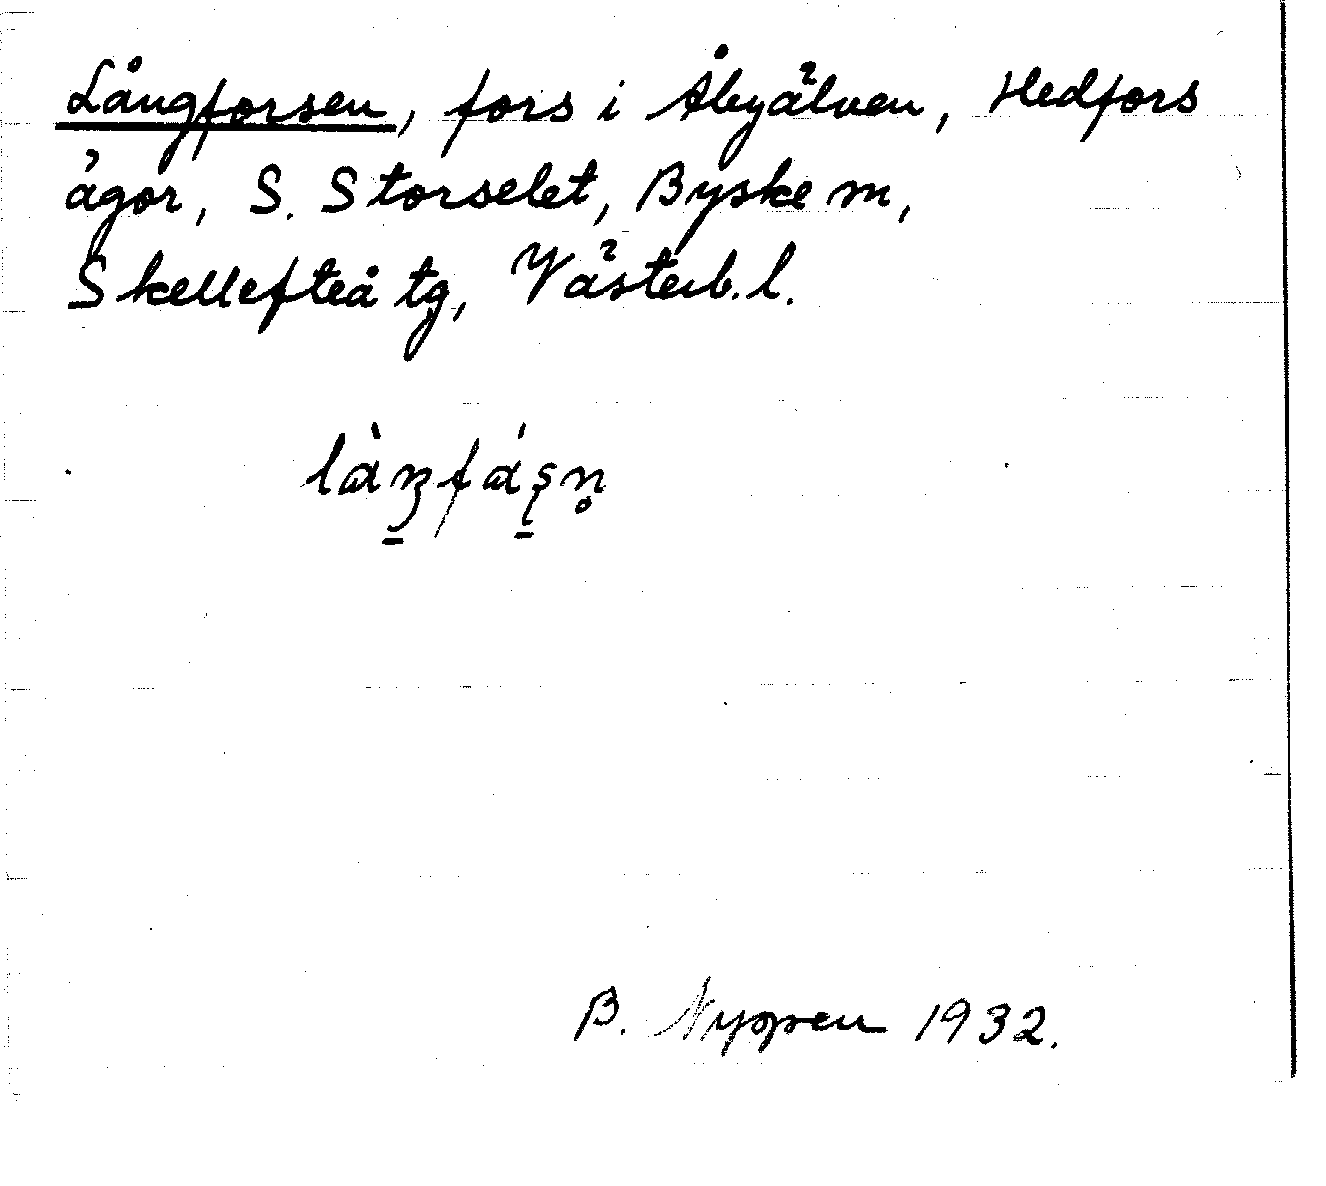 Långforsen, fors i Åbyälven, Hedfors
ägor, S. Storselet, Byske sn,
Skellefteå tg, Västerb. l.
B. Nyppen 1932.